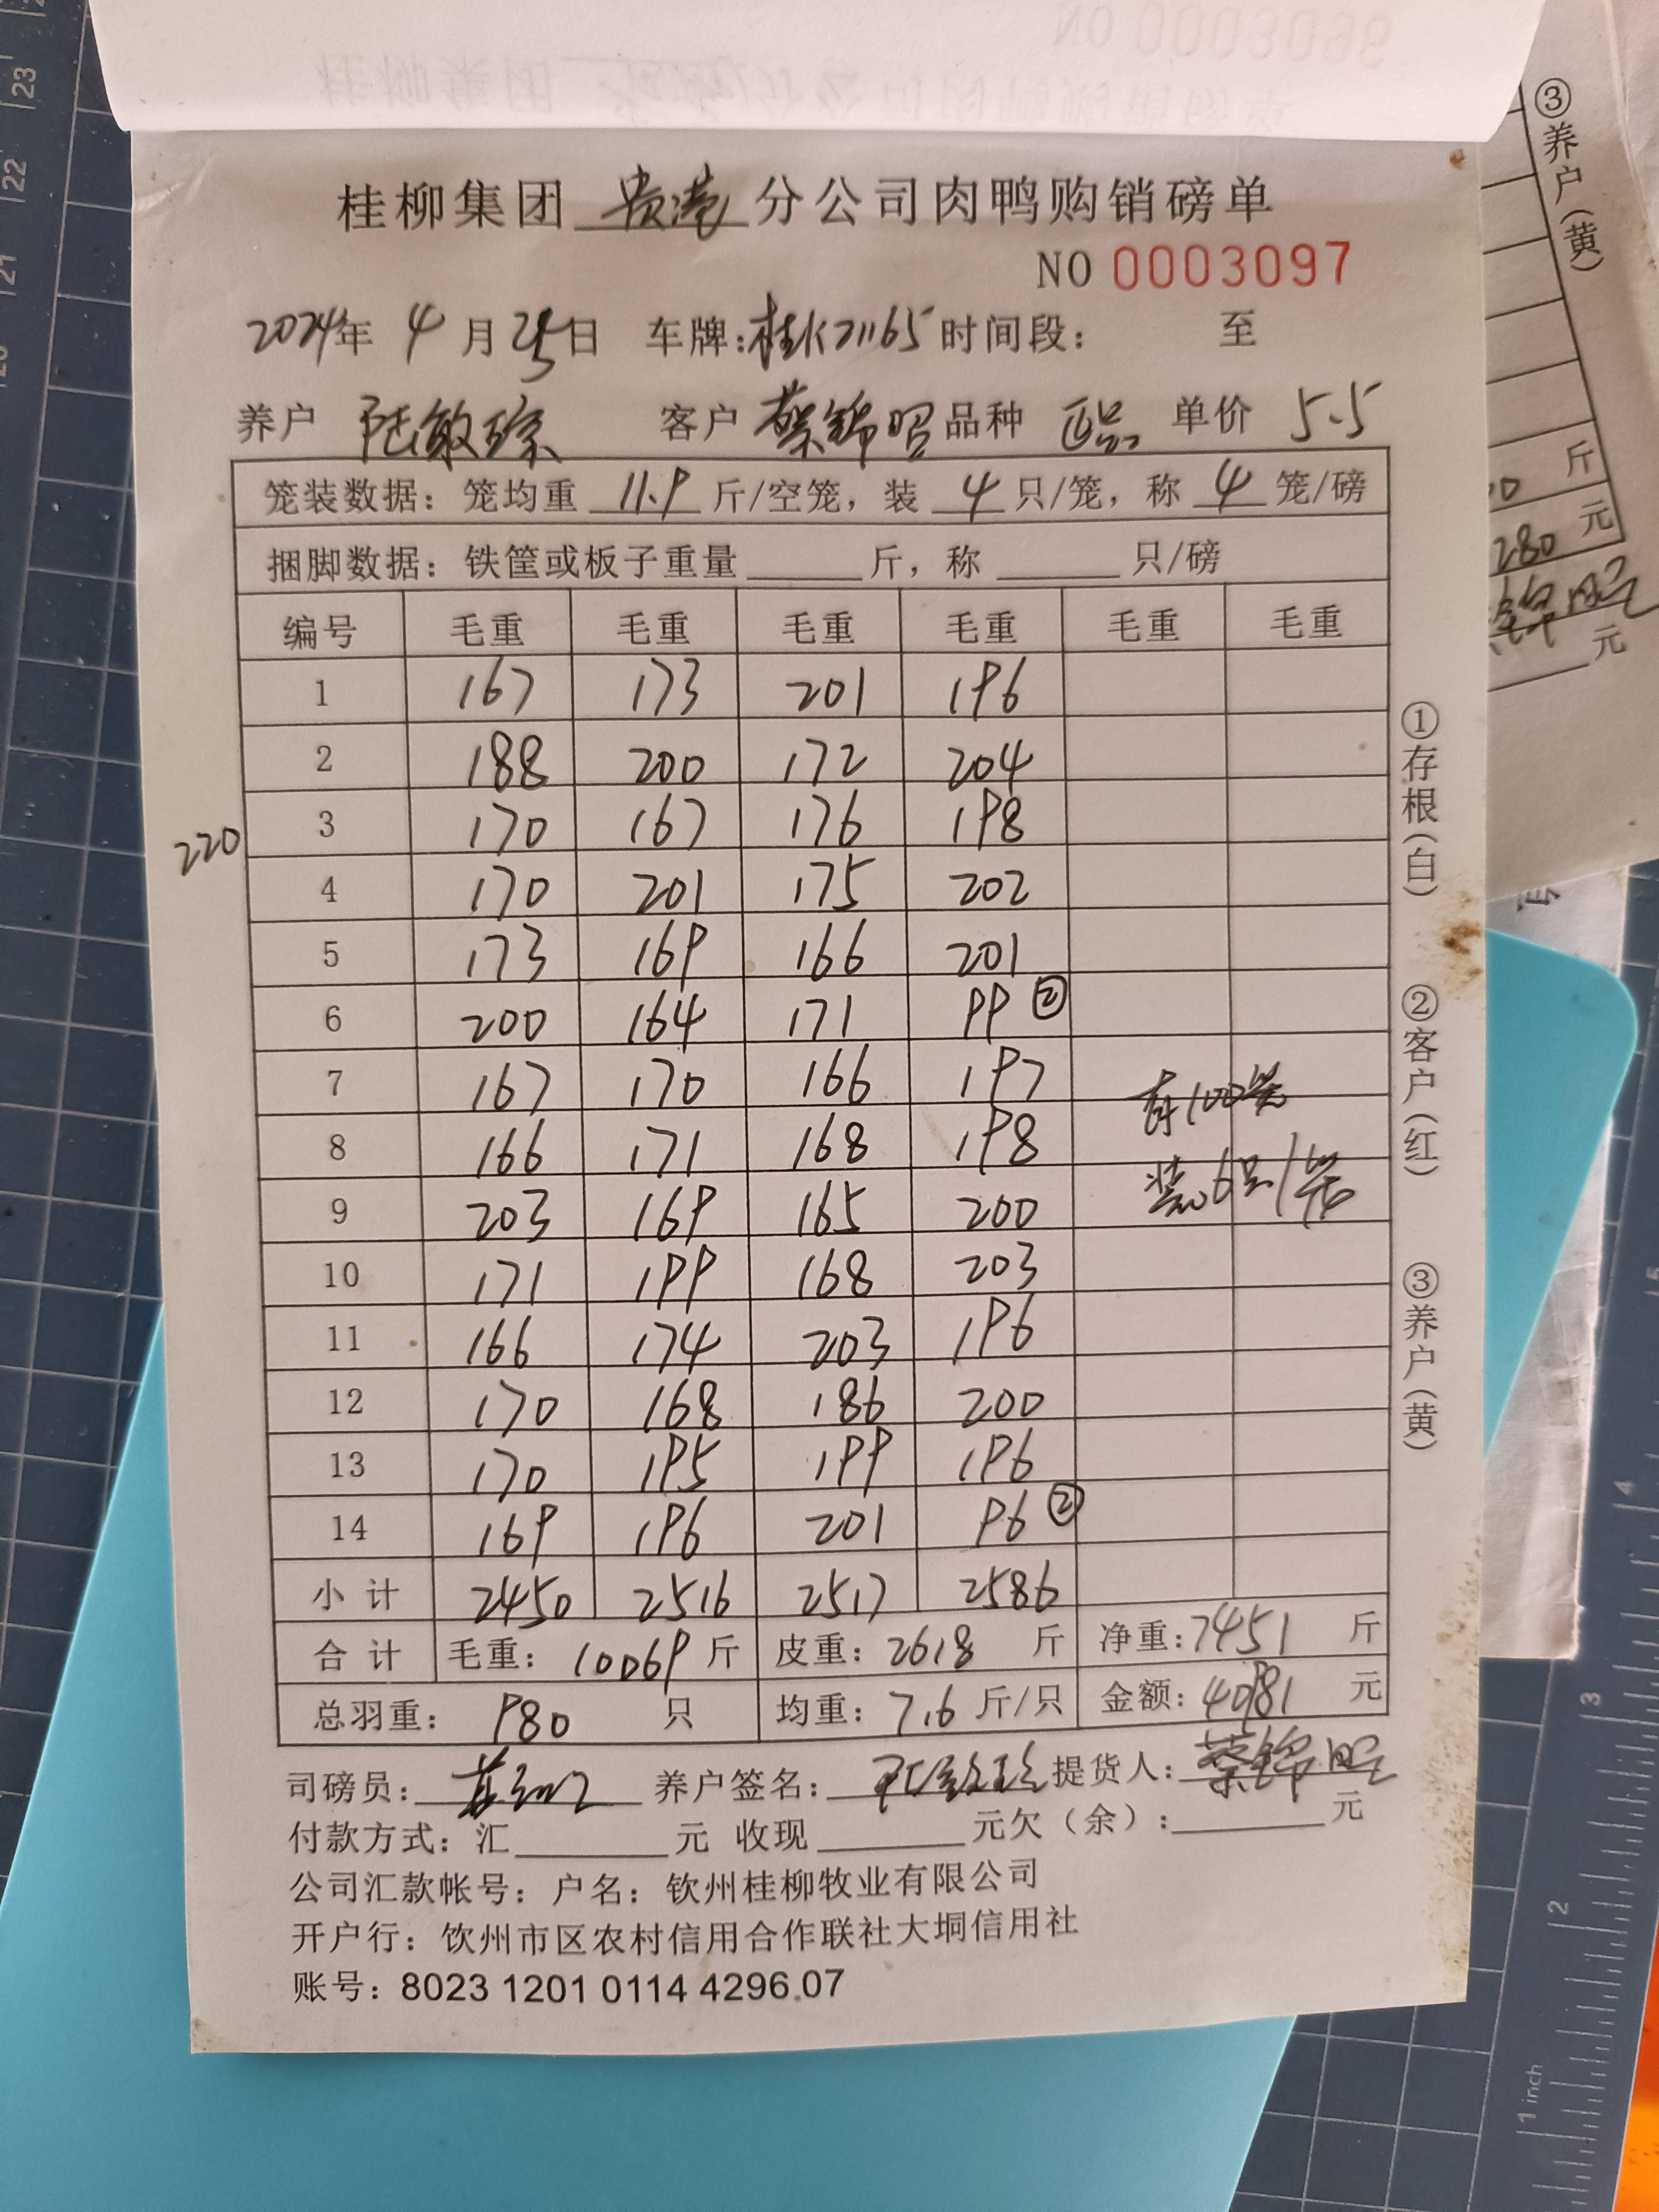 桂柳集团 贵港 分公司肉鸭购销磅单
NO 0003097
2024年 4 月 25日 车牌:桂K21165 时间段: 至
养户 陆敏琼 客户 蔡锦昭 品种 正品 单价 5.5
笼装数据: 笼均重 11.9 斤/空笼, 装 4 只/笼, 称 4 笼/磅
捆脚数据: 铁筐或板子重量 斤, 称 只/磅
编号 毛重 毛重 毛重 毛重 毛重 毛重
1 167 173 201 196
2 188 200 172 204
3 170 167 176 198
220
4 170 201 175 202
5 173 169 166 201
6 200 164 171 99 ②
7 167 170 166 197 有100笼
8 166 171 168 198
9 203 169 165 200 装6只1笼
10 171 199 168 203
11 166 174 203 196
12 170 168 186 200
13 170 195 199 196
14 169 196 201 96 ②
小计 2450 2516 2517 2586
合计 毛重: 10069 斤 皮重: 2618 斤 净重: 7451 斤
总羽重: 980 只 均重: 7.6 斤/只 金额: 40981 元
司磅员: 养户签名: 提货人: 蔡锦昭
付款方式: 汇 元 收现 元欠(余): 元
公司汇款帐号: 户名: 钦州桂柳牧业有限公司
开户行: 饮州市区农村信用合作联社大垌信用社
账号: 8023 1201 0114 4296.07
①存根(白)
②客户(红)
③养户(黄)
③养户(黄)
斤
元
280
锦昭
元
23
22
21
20
5
4
3
2
1 inch